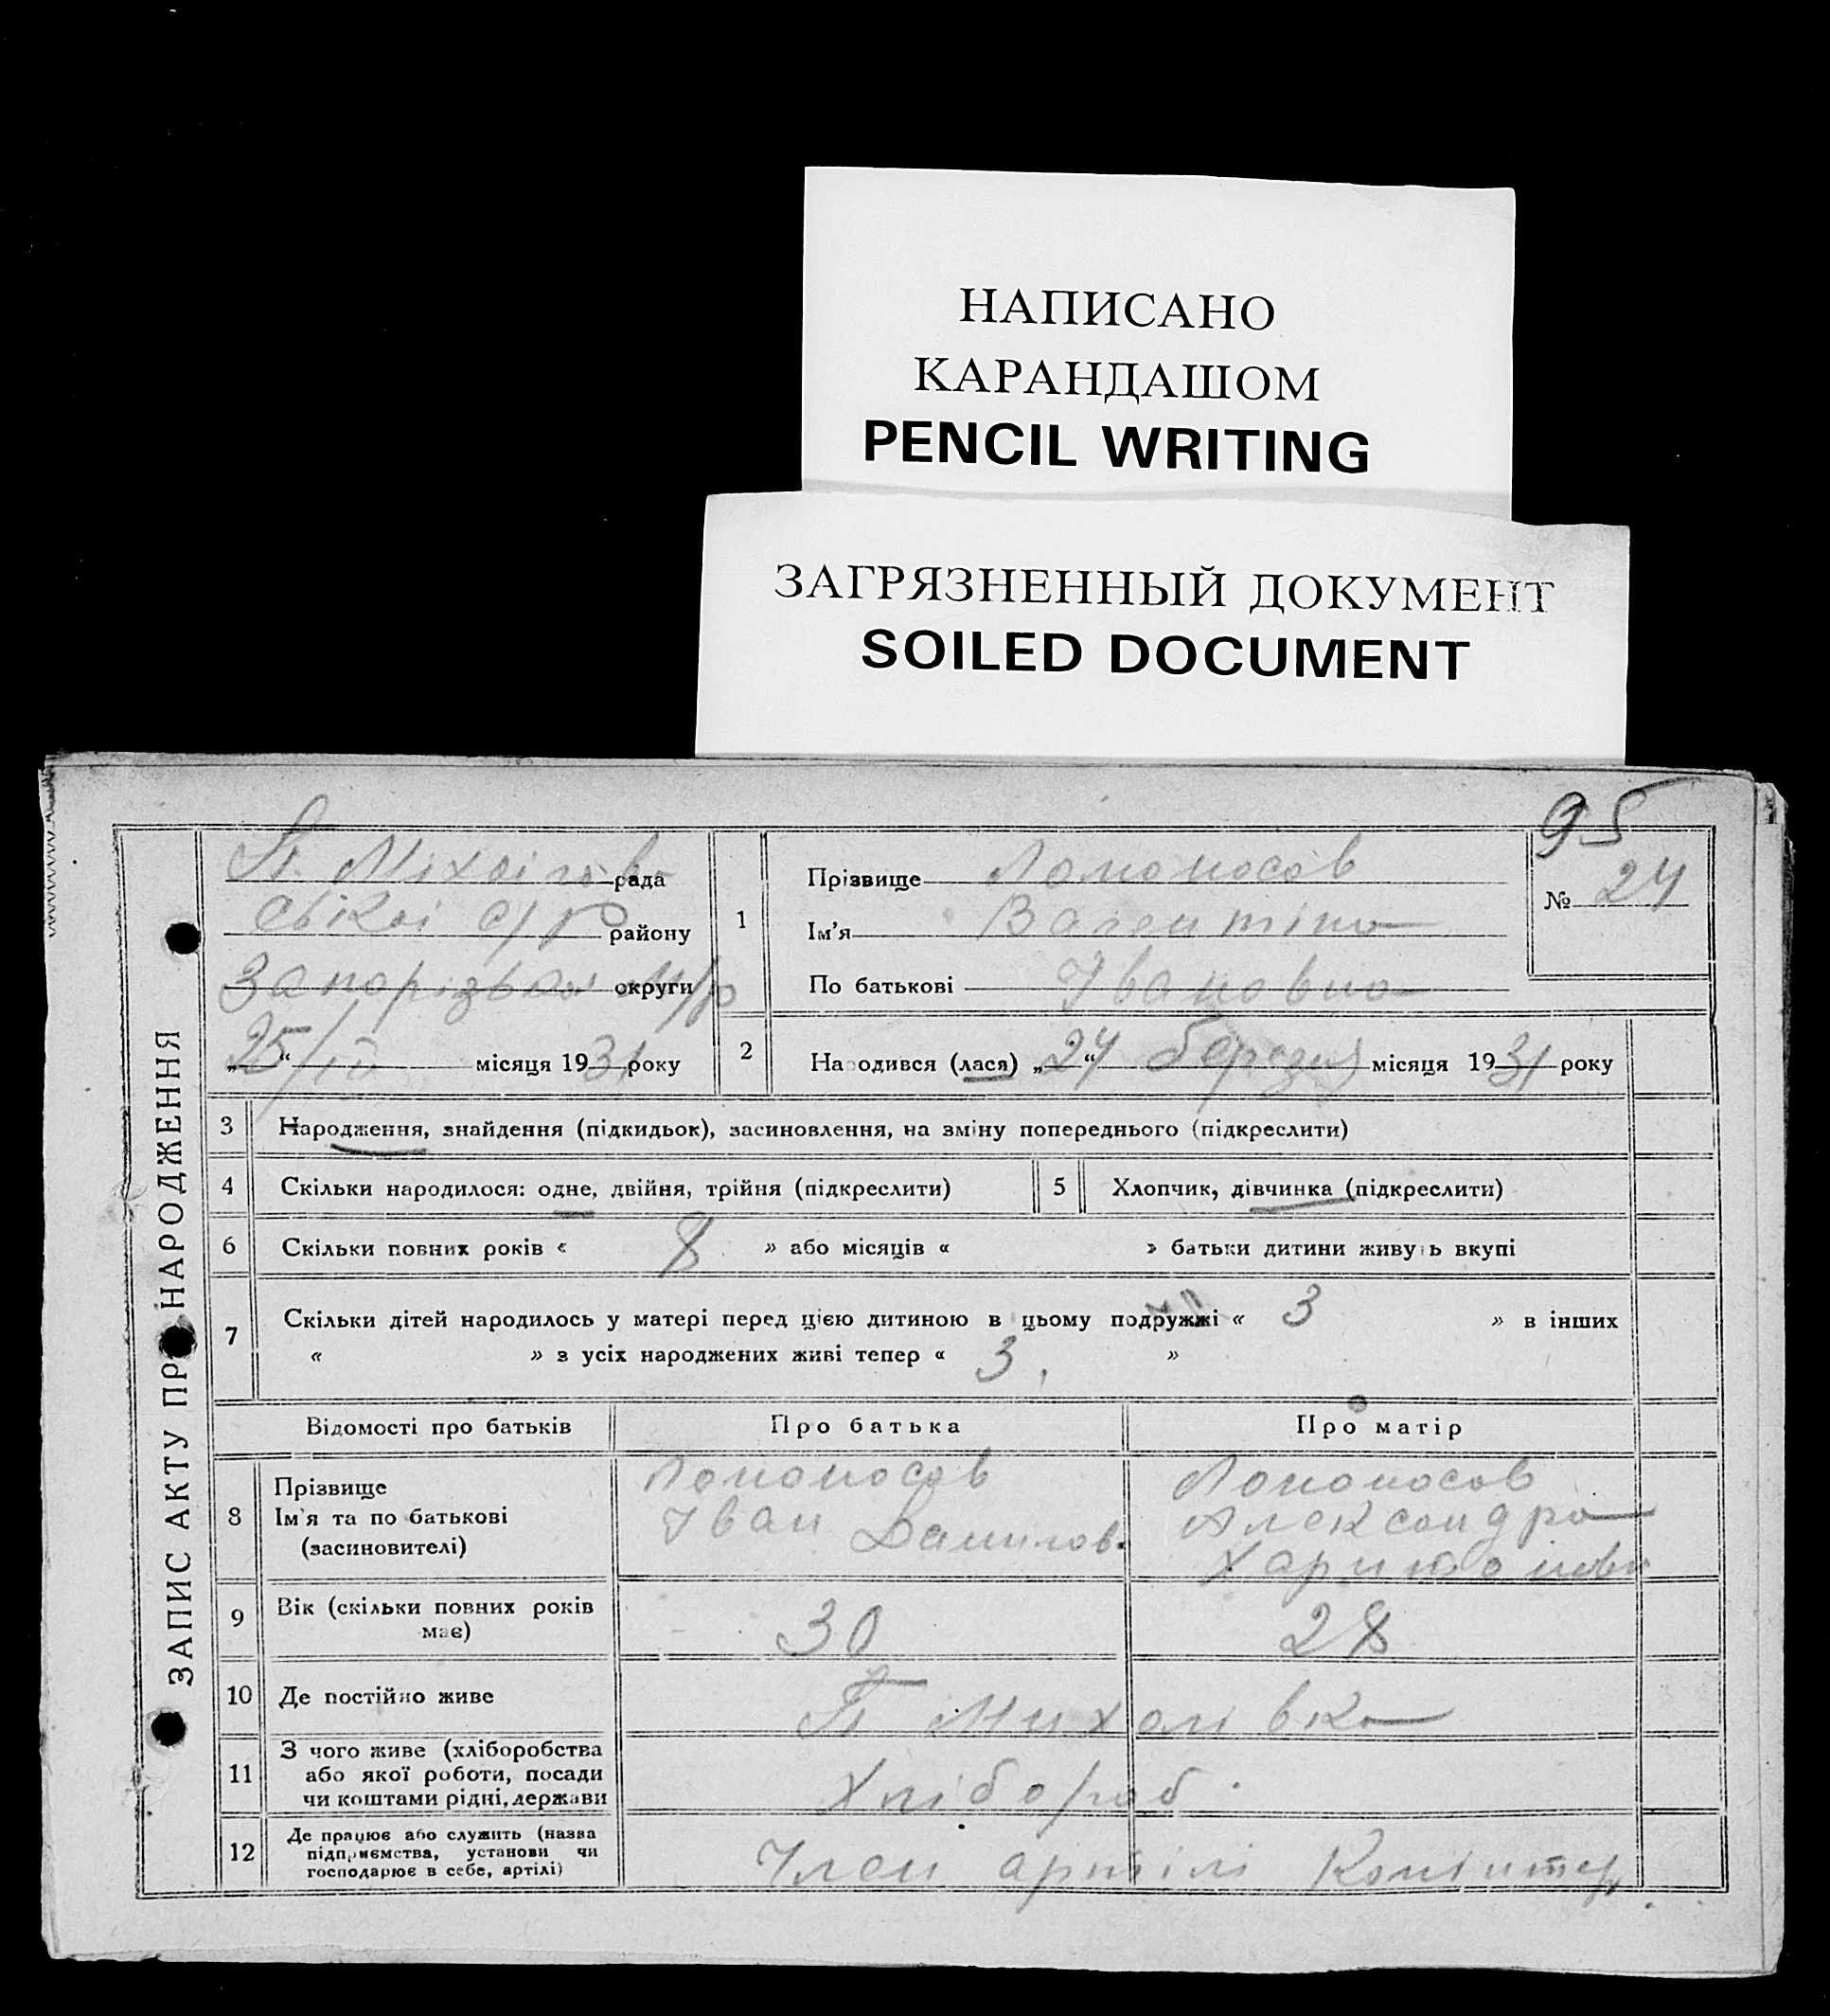 НАПИСАНО
КАРАНДАШОМ
PENCIL WRITING
ЗАГРЯЗНЕННЫЙ ДОКУМЕНТ
SOILED DOCUMENT
95
ЗАПИС АКТУ ПРО НАРОДЖЕННЯ
рада
району
округи
25/ місяця 1931 року
1
Прізвище Ломоносов
Ім'я Валентіна
По батькові Івановна
№ 24
2 Народився (лася) „24“ березня місяця 1931 року
3 Народження, знайдення (підкидьок), засиновлення, на зміну попереднього (підкреслити)
4 Скільки народилося: одне, двійня, трійня (підкреслити)
5 Хлопчик, дівчинка (підкреслити)
6 Скільки повних років « 8 » або місяців « » батьки дитини живуть вкупі
7 Скільки дітей народилось у матері перед цією дитиною в цьому подружжі « 3 » в інших
« » з усіх народжених живі тепер « 3 »
Відомості про батьків Про батька Про матір
8 Прізвище Ломоносов Ломоносов
Ім'я та по батькові Іван Данилов. Александра
(засиновителі)
9 Вік (скільки повних років має) 30 28
10 Де постійно живе
11 З чого живе (хліборобства
або якої роботи, посади
чи коштами рідні, держави
Хлібороб
12 Де працює або служить (назва
підприємства, установи чи
господарює в себе, артілі)
Член артілі Комінтер